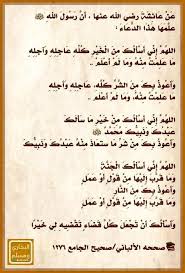 عَنْ عَائِشَةَ رضي الله عنها ، أَنَّ رَسُولَ اللَّهِ ﷺ
عَلَّمَهَا هَذَا الدُّعَاءَ :
اللَّهُمَّ إِنِّي أَسْأَلُكَ مِنَ الْخَيْرِ كُلِّهِ عَاجِلِهِ وَآجِلِهِ
مَا عَلِمْتُ مِنْهُ وَمَا لَمْ أَعْلَمْ ..
وَأَعُوذُ بِكَ مِنَ الشَّرِّ كُلِّهِ، عَاجِلِهِ وَآجِلِهِ
مَا عَلِمْتُ مِنْهُ، وَمَا لَمْ أَعْلَمْ ..
اللَّهُمَّ إِنِّي أَسْأَلُكَ مِنْ خَيْرِ مَا سَأَلَكَ
عَبْدُكَ وَنَبِيُّكَ مُحَمَّدٌ ﷺ
وَأَعُوذُ بِكَ مِنْ شَرِّ مَا اسْتَعَاذَ مِنْهُ عَبْدُكَ وَنَبِيُّكَ
اللَّهُمَّ إِنِّي أَسْأَلُكَ الْجَنَّةَ
وَمَا قَرَّبَ إِلَيْهَا مِنْ قَوْلٍ أَوْ عَمَلٍ
وَأَعُوذُ بِكَ مِنَ النَّارِ
وَمَا قَرَّبَ إِلَيْهَا مِنْ قَوْلٍ أَوْ عَمَلٍ
وَأَسْأَلُكَ أَنْ تَجْعَلَ كُلَّ قَضَاءٍ تَقْضِيهِ لِي خَيْرًا
صححه الألباني/صحيح الجامع ١٢٧٦
البخاري
ومسلم